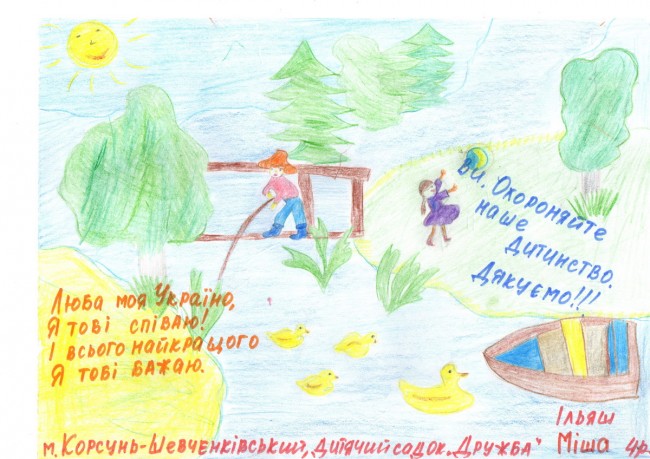 Люба моя Україно,
Я тобі співаю!
І всього найкращого
Я тобі бажаю.
Ви. Охороняйте
наше
дитинство.
Дякуємо!!!
м. Корсунь-Шевченківський, дитячий садок „Дружба"
Ільяш
Міша 4р.